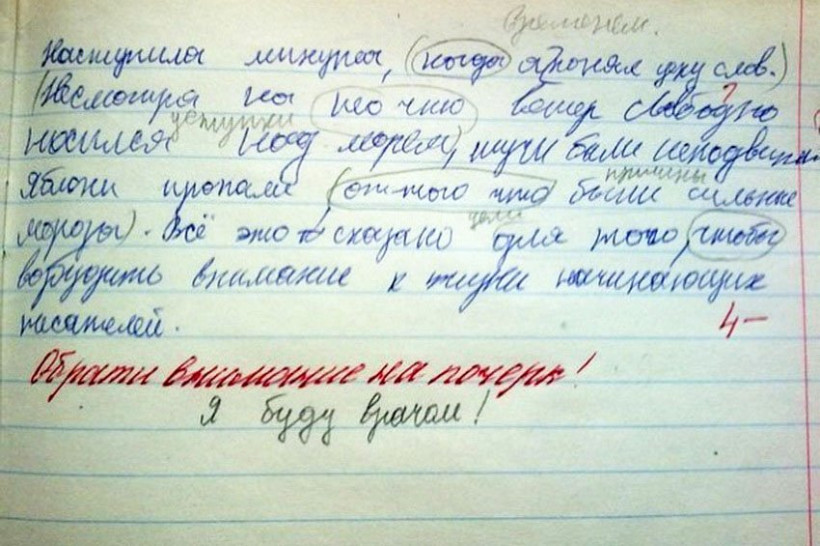 Временем.
Наступила минута, (когда я понял цену слов.)
(Несмотря на то что ветер свободно
уступки
носился над морем), тучи были неподвижны
причины
Яблони пропали (оттого что были сильные
цели
морозы). Всё это сказано для того, чтобы
возбудить внимание к жизни начинающих
писателей. 4-
Обрати внимание на почерк!
Я буду врачом!